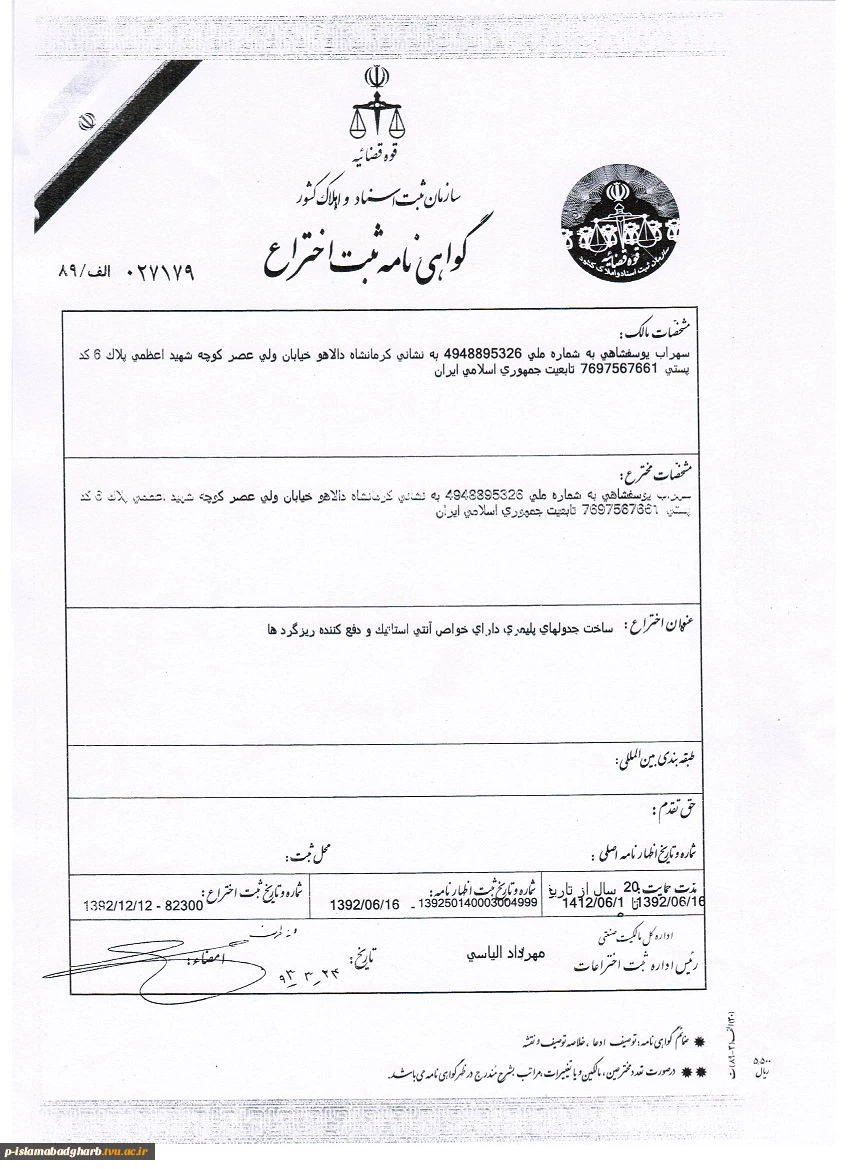 قوه قضائیه
سازمان ثبت اسناد و املاک کشور
گواهی نامه ثبت اختراع
قوه قضائیه
سازمان ثبت اسناد و املاک کشور
۰۲۷۱۷۹ الف/۸۹
مشخصات مالک:
سهراب يوسفشاهي به شماره ملي 4948895326 به نشاني كرمانشاه دالاهو خيابان ولي عصر كوچه شهيد اعظمي پلاك 6 كد
پستي 7697567661 تابعيت جمهوري اسلامي ايران
مشخصات مخترع:
سهراب يوسفشاهي به شماره ملي 4948895326 به نشاني كرمانشاه دالاهو خيابان ولي عصر كوچه شهيد اعظمي پلاك 6 كد
پستي 7697567661 تابعيت جمهوري اسلامي ايران
عنوان اختراع: ساخت جدولهاي پليمري داراي خواص آنتي استاتيك و دفع كننده ريزگرد ها
طبقه بندی بین المللی:
حق تقدم:
شماره و تاریخ اظهارنامه اصلی: محل ثبت:
مدت حمایت: 20 سال از تاریخ
1392/06/16 تا 1412/06/1
شماره و تاریخ ثبت اظهارنامه:
139250140003004999 - 1392/06/16
شماره و تاریخ ثبت اختراع:
82300 - 1392/12/12
اداره کل مالکیت صنعتی
رئیس اداره ثبت اختراعات
مهرداد الياسي
تاریخ: ۹۳_۳_۲۴
امضاء:
ضمائم گواهی نامه: توصیف ادعا، خلاصه توصیف و نقشه
درصورت تعدد مخترعین، مالکین و یا تغییرات، مراتب بشرح مندرج در ظهر گواهی نامه می باشد.
۵۵۰۰
ریال
p-islamabadgharb.tvu.ac.ir